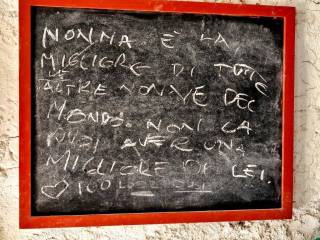 NONNA È LA
MIGLIORE DI TUTTE
LE ALTRE NONNE DEL
MONDO. NON LA
PUOI AVER UNA
MIGLIORE DI LEI.
♡ 100